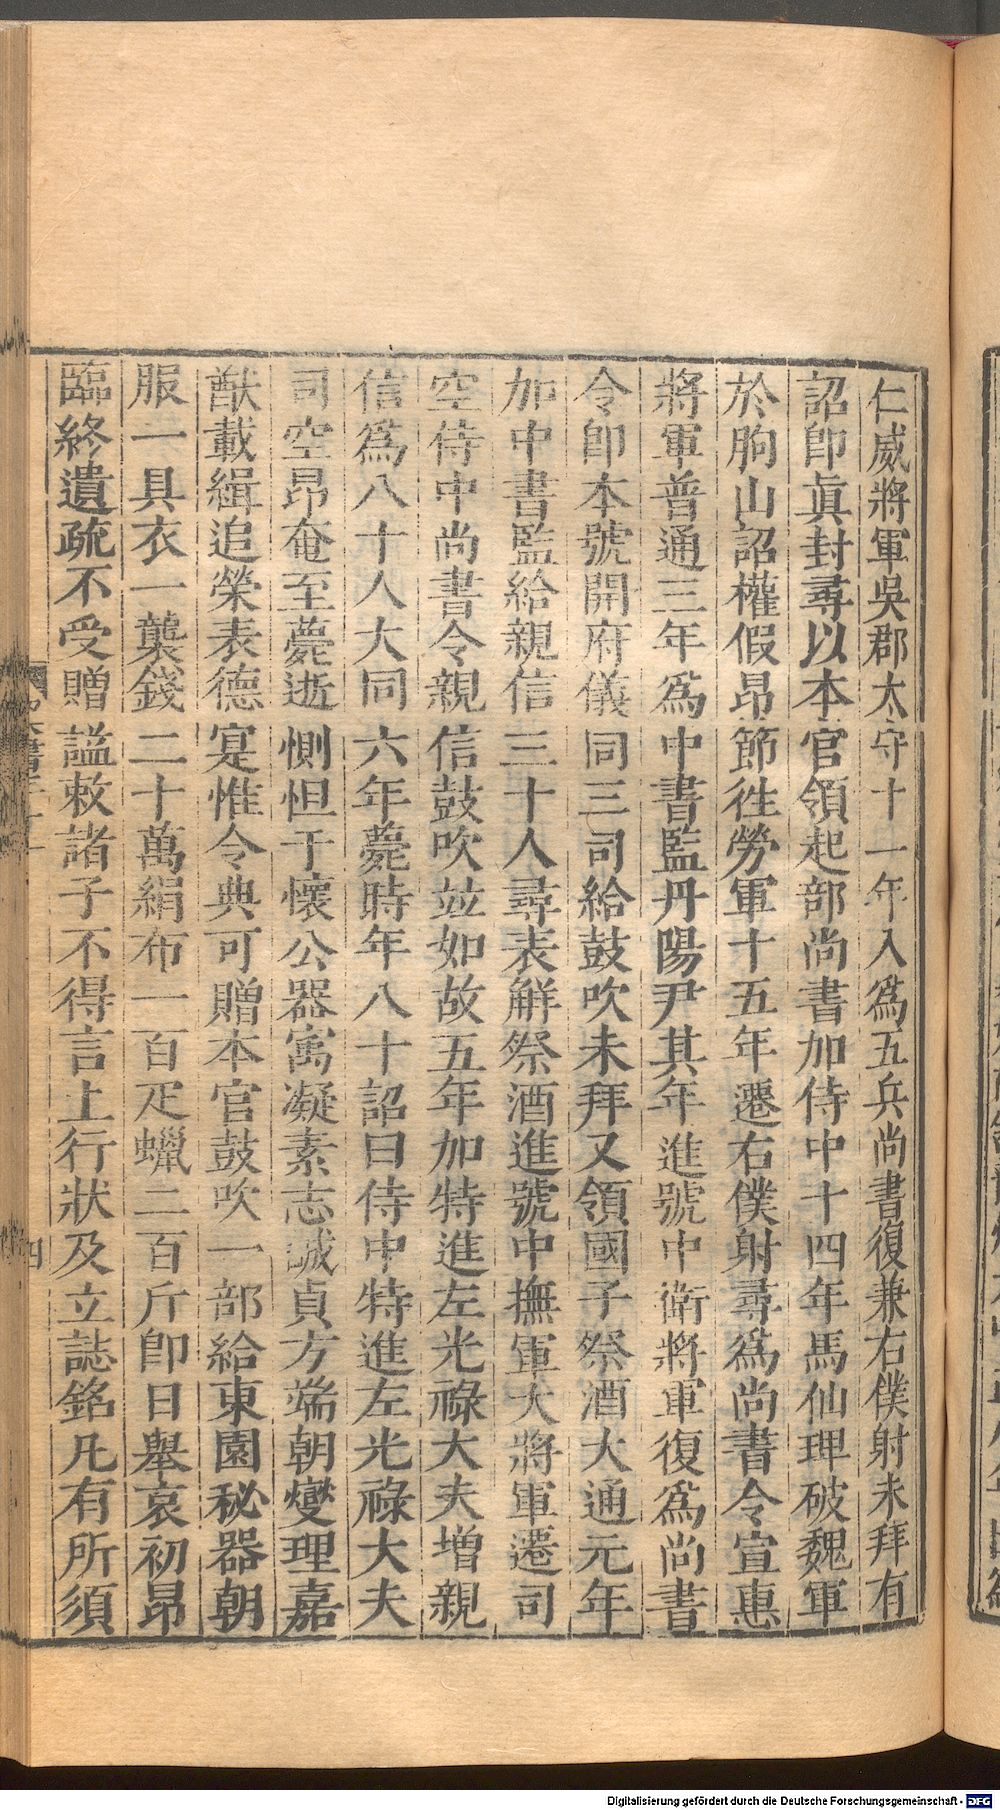 仁威將軍吳郡太守十一年入爲五兵尚書復兼右僕射未拜有
詔卽眞封尋以本官領起部尚書加侍中十四年馬仙琕破魏軍
於朐山詔權假昂節徃勞軍十五年遷右僕射尋爲尚書令宣惠
將軍普通三年爲中書監丹陽尹其年進號中衛將軍復爲尚書
令卽本號開府儀同三司給鼓吹未拜又領國子祭酒大通元年
加中書監給親信三十人尋表解祭酒進號中撫軍大將軍遷司
空侍中尚書令親信鼓吹竝如故五年加特進左光祿大夫增親
信爲八十人大同六年薨時年八十詔曰侍中特進左光祿大夫
司空昂奄至薨逝惻怛于懷公器寓凝素志誠貞方端朝燮理嘉
猷載緝追榮表德寔惟令典可贈本官鼓吹一部給東園秘器朝
服一具衣一襲錢二十萬絹布一百疋蠟二百斤卽日舉哀初昂
臨終遺疏不受贈謚敕諸子不得言上行狀及立誌銘凡有所須
四
Digitalisierung gefördert durch die Deutsche Forschungsgemeinschaft - DFG